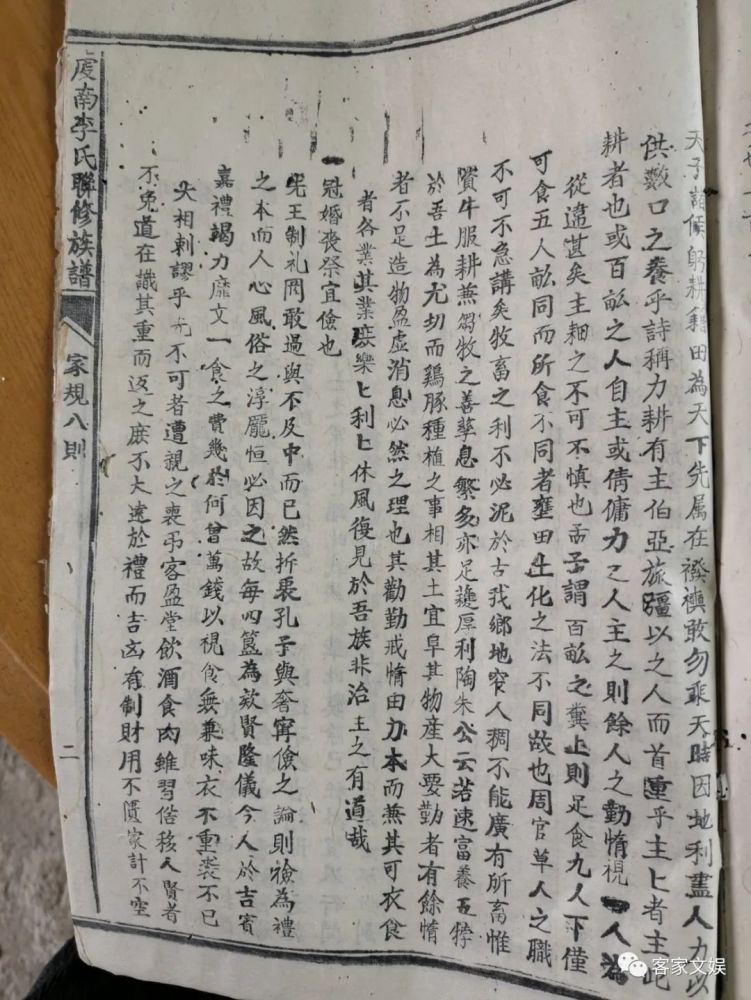 天子諸侯躬耕籍田為天下先属在襏襫敢勿乘天時因地利盡人力以
供數口之養乎詩稱力耕有主伯亞旅疆以之人而首重乎主乚者主此
耕者也或百畝之人自主或倩傭力之人主之則餘人之勤惰視一人為
從違甚矣主耕之不可不慎也孟子謂百畝之糞上則足食九人下僅
可食五人畝同而所食不同者壅田土化之法不同故也周官草人之職
不可不急講矣牧畜之利不必泥於古我鄉地窄人稠不能廣有所畜惟
犢牛服耕無芻牧之善孳息繁多亦足獲厚利陶朱公云若速富養五牸
於吾土為尤切而鷄豚種植之事相其土宜阜其物產大要勤者有餘惰
者不足造物盈虛消息必然之理也其勸勤戒惰由力本而兼其可衣食
者各業其業庶樂乚利乚休風復見於吾族非治主之有道哉
一冠婚喪祭宜儉也
先王制礼罔敢過與不及中而已然折衷孔子與奢寧儉之論則儉為禮
之本而人心風俗之浮龐恒必因之故每四簋為欵賢隆儀今人於吉賓
嘉禮竭力靡文一食之費幾於何曾萬錢以視食無兼味衣不重裘不已
大相剌謬乎尤不可者遭親之喪吊客盈堂飲酒食肉雖習俗移人賢者
不免道在識其重而返之庶不大遠於禮而吉凶有制財用不匱家計不空
虔南李氏聯修族譜
家規八則
二
客家文娱